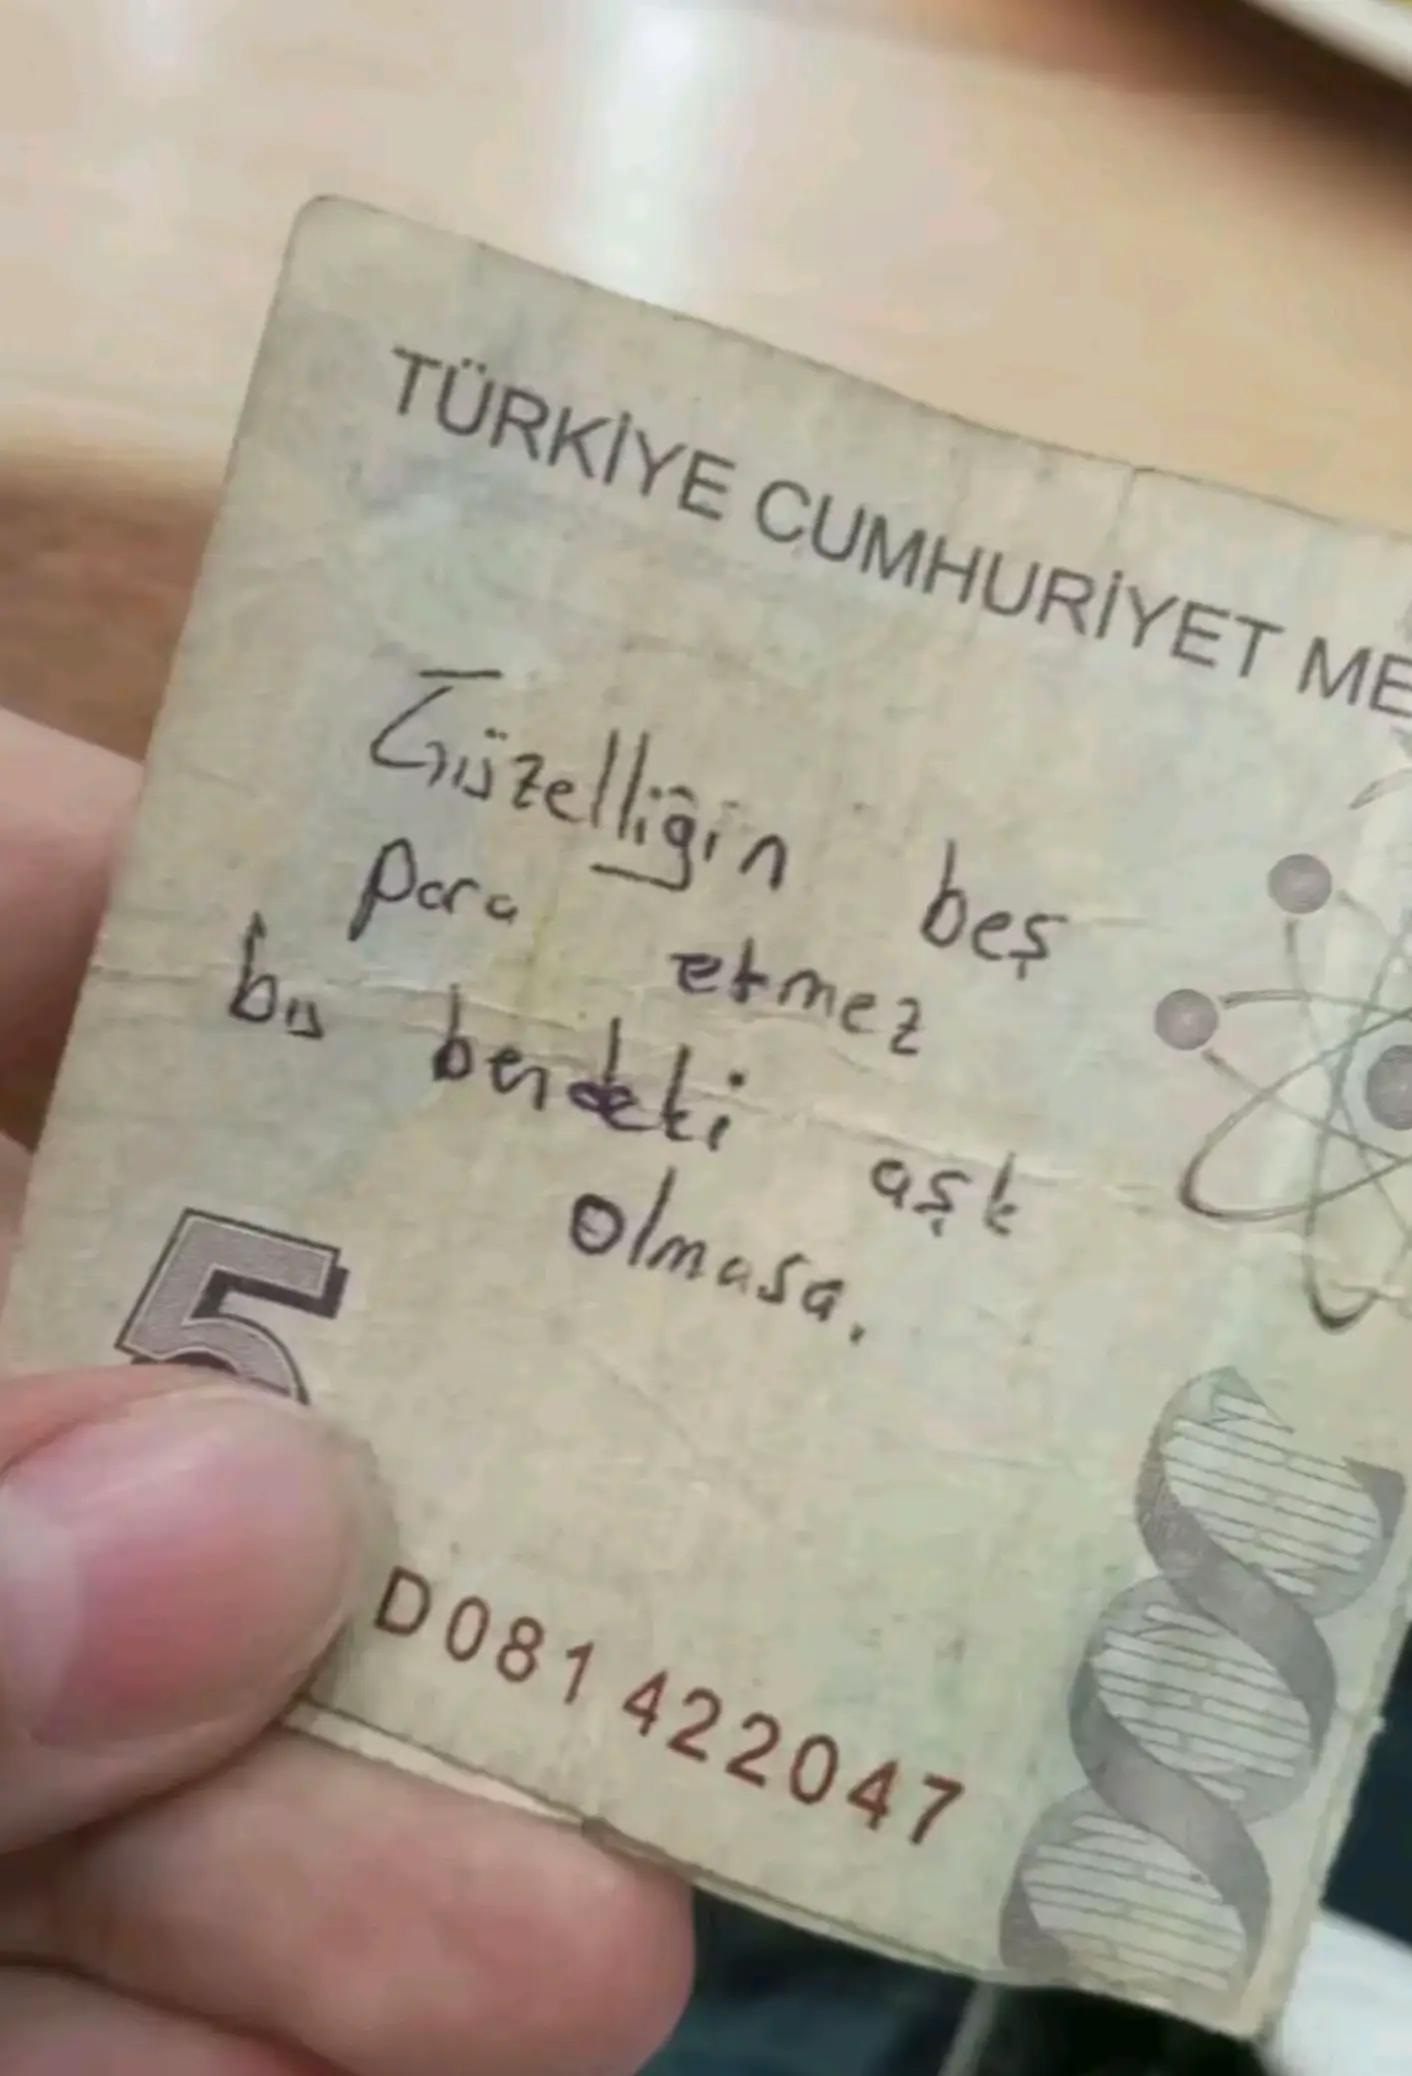 TÜRKİYE CUMHURİYET ME
Güzelliğin beş
para etmez
bu bendeki aşk
olmasa.
5
D081 422047